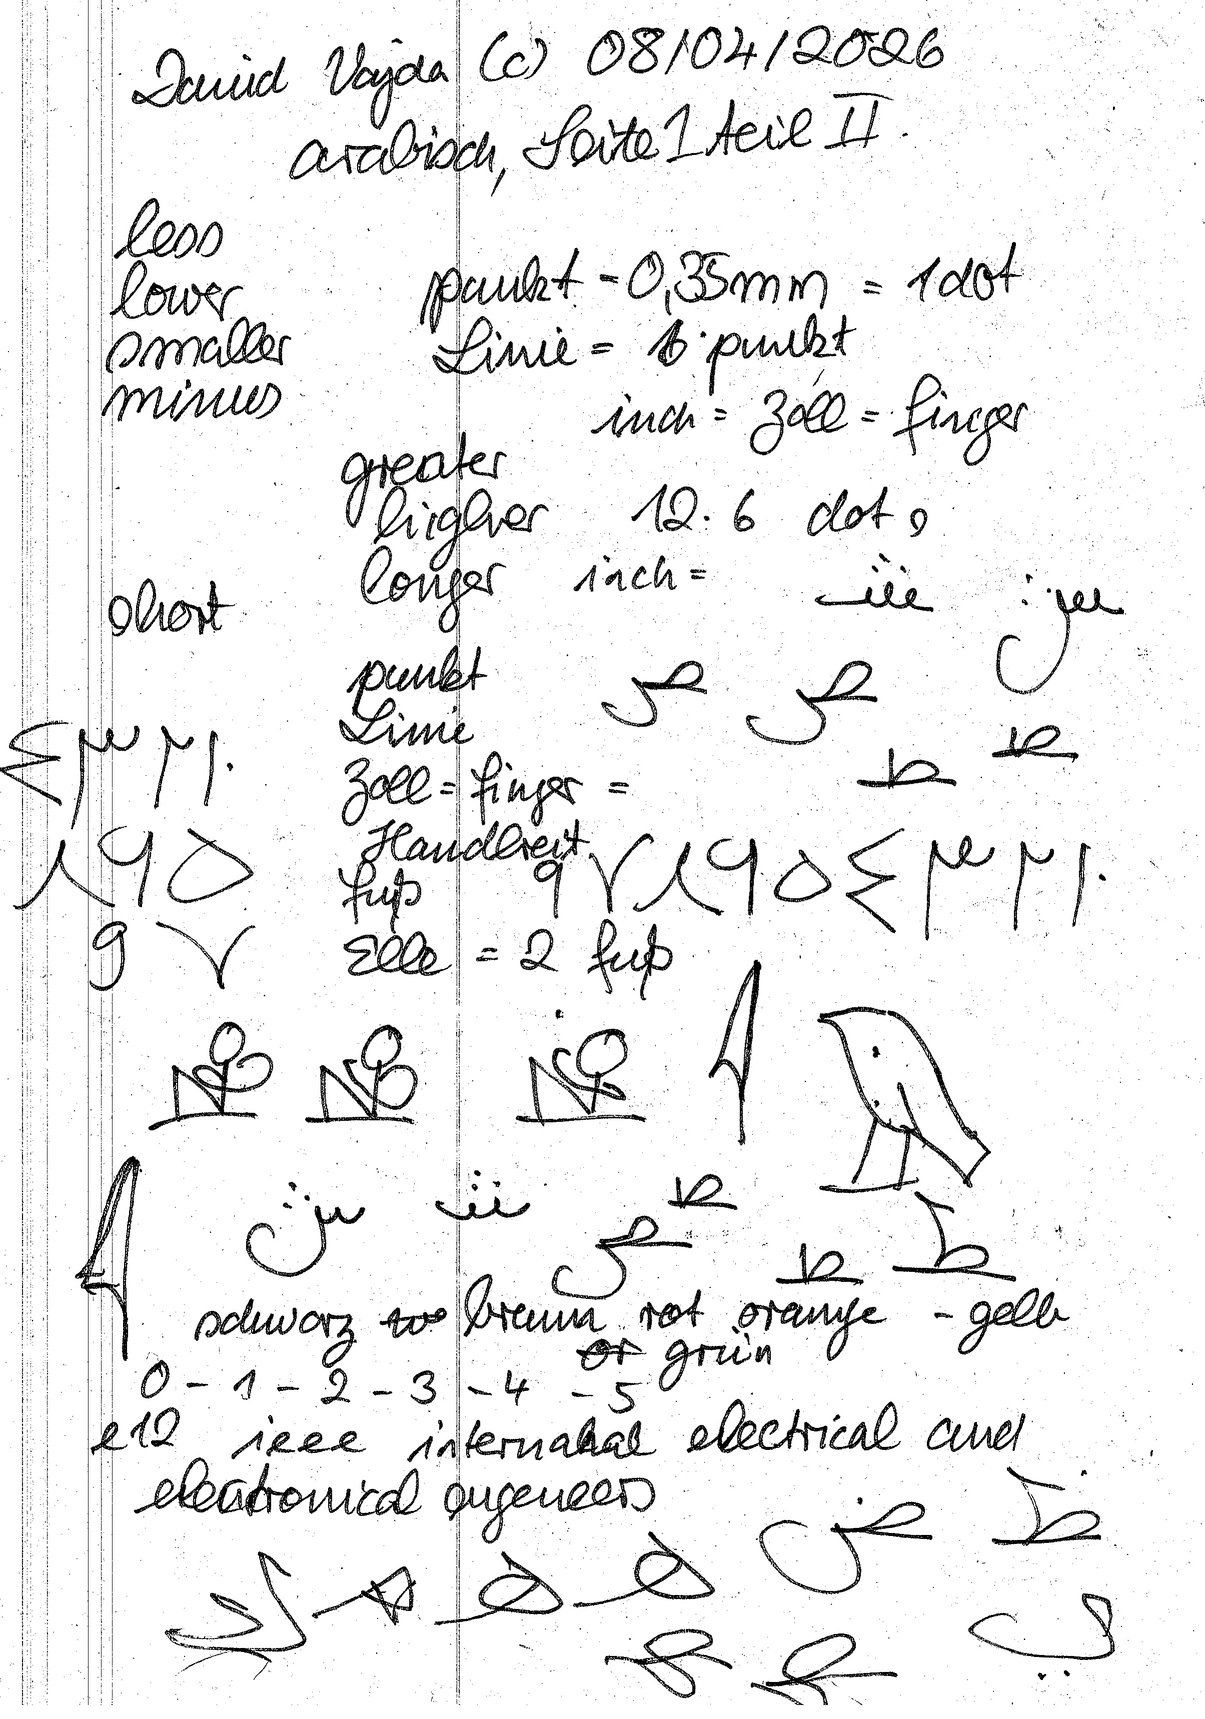 David Vajda (c) 08/04/2026
arabisch, Seite 1 Teil II.
less
lower
smaller
minus
punkt - 0,35mm = 1 dot
Linie = 6·punkt
inch = Zoll = finger
greater
higher
longer
12. 6 dot,
inch =
short
punkt
Linie
Zoll = finger =
Handbreit
fuß
Elle = 2 fuß
ص ص
ط ط
٤٣٢١٠
٨٩٥
9 ٧
9 ٧٨٩٥٤٣٢١٠
ص
ط ط ط
schwarz braun rot orange - gelb
grün
0 - 1 - 2 - 3 - 4 - 5
e12 ieee internahal electrical and
electronical engeneers
ض ظ